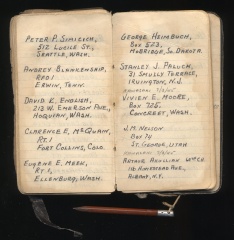 PETER P. SIMICICH,
512 LUCILE ST.,
SEATTLE, WASH.
ANDREY BLANKENSHIP,
RFD 1
ERWIN, TENN.
DAVID K. ENGLISH,
212 W. EMERSON AVE.,
HOQUIAM, WASH.
CLARENCE E. MCQUAIN,
RT. 1
FORT COLLINS, COLO.
EUGENE F. MEEK,
RT. 1,
ELLENBURG, WASH.
GEORGE HEIMBUCH,
BOX 523,
MOBRIDGE, SO. DAKOTA.
STANLEY J. PALUCH,
31 SMALLY TERRACE,
IRVINGTON, N.J.
VIVIEN E. MOORE,
BOX 725.
CONCRETE, WASH.
J.M. NELSON
BOX 74
ST. GEORGE, UTAH
ARTHUR
ALBANY, N.Y.